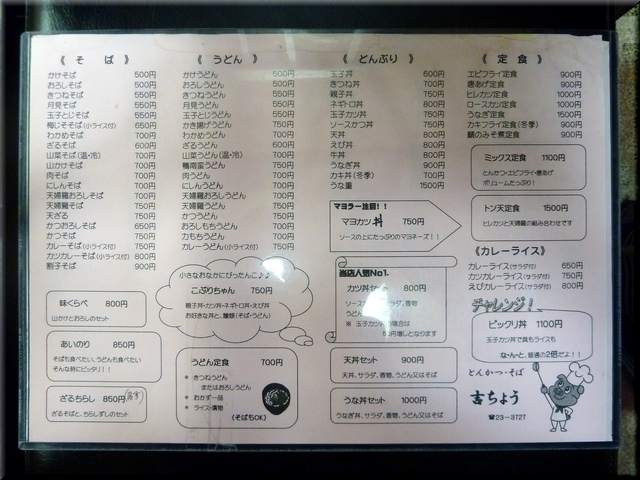 《 そ ば 》
かけそば 500円
おろしそば 550円
きつねそば 550円
月見そば 550円
玉子とじそば
梅じそそば(小ライス付) 650円
わかめそば 700円
ざるそば 600円
山菜そば(温・冷) 700円
山かけそば 700円
肉そば 700円
にしんそば 700円
天婦羅おろしそば 700円
天婦羅そば 750円
天ざる 750円
かつおろしそば 650円
かつそば 750円
カレーそば(小ライス付) 750円
カツカレーそば(小ライス付) 800円
割子そば 900円
味くらべ 800円
山かけとおろしのセット
あいのり 850円
そばも食べたい、うどんも食べたい
そんな時にピッタリ!!
ざるちらし 850円
ざるそばと、ちらしずしのセット
《 うどん 》
かけうどん 500円
おろしうどん 550円
きつねうどん 550円
月見うどん 550円
玉子とじうどん
かき揚げうどん 750円
わかめうどん 700円
ざるうどん 600円
山菜うどん(温・冷) 700円
鴨南蛮うどん
肉うどん 700円
にしんうどん 700円
天婦羅おろしうどん 700円
天婦羅うどん 750円
かつうどん 750円
おろしもちうどん 700円
力もちうどん 700円
カレーうどん(小ライス付) 750円
小さなおなかにぴったんこ♪♪
こぶりちゃん 750円
親子丼・カツ丼・ネギトロ丼・えび丼
お好きな丼と、麺類(そば・うどん)
うどん定食 700円
* きつねうどん
またはおろしうどん
* おかず一品
* ライス・漬物
(そばもOK)
《 どんぶり 》
玉子丼 600円
きつね丼 700円
親子丼 750円
ネギトロ丼 800円
玉子カツ丼 750円
ソースかつ丼 750円
天丼 800円
えび丼 800円
牛丼 800円
うなぎ丼 900円
カキ丼(冬季) 700円
うな重 1500円
マヨラー注目!!
マヨカツ丼 750円
ソースの上にたっぷりのマヨネーズ!!
当店人気No.1
カツ丼セット 800円
ソースカツ丼、サラダ、香物、
うどん又はそば
※ 玉子カツ丼の場合は
50円増しとなります
天丼セット 900円
天丼、サラダ、香物、うどん又はそば
うな丼セット 1000円
うなぎ丼、サラダ、香物、うどん又はそば
《 定 食 》
エビフライ定食 900円
唐あげ定食 900円
ヒレカツ定食 1000円
ロースカツ定食 1000円
うなぎ定食 1500円
カキフライ定食(冬季) 900円
鯖のみそ煮定食 900円
ミックス定食 1100円
とんかつ・エビフライ・唐あげ
ボリュームたっぷり!
トン天定食 1500円
ヒレカツと天婦羅の組み合わせです
《カレーライス》
カレーライス(サラダ付) 650円
カツカレーライス(サラダ付) 750円
えびカレーライス(サラダ付) 800円
チャレンジ!
ビックリ丼 1100円
玉子カツ丼で具もライスも
な~んと、普通の2倍だよ!!
とんかつ・そば
吉ちょう
☎23-3727